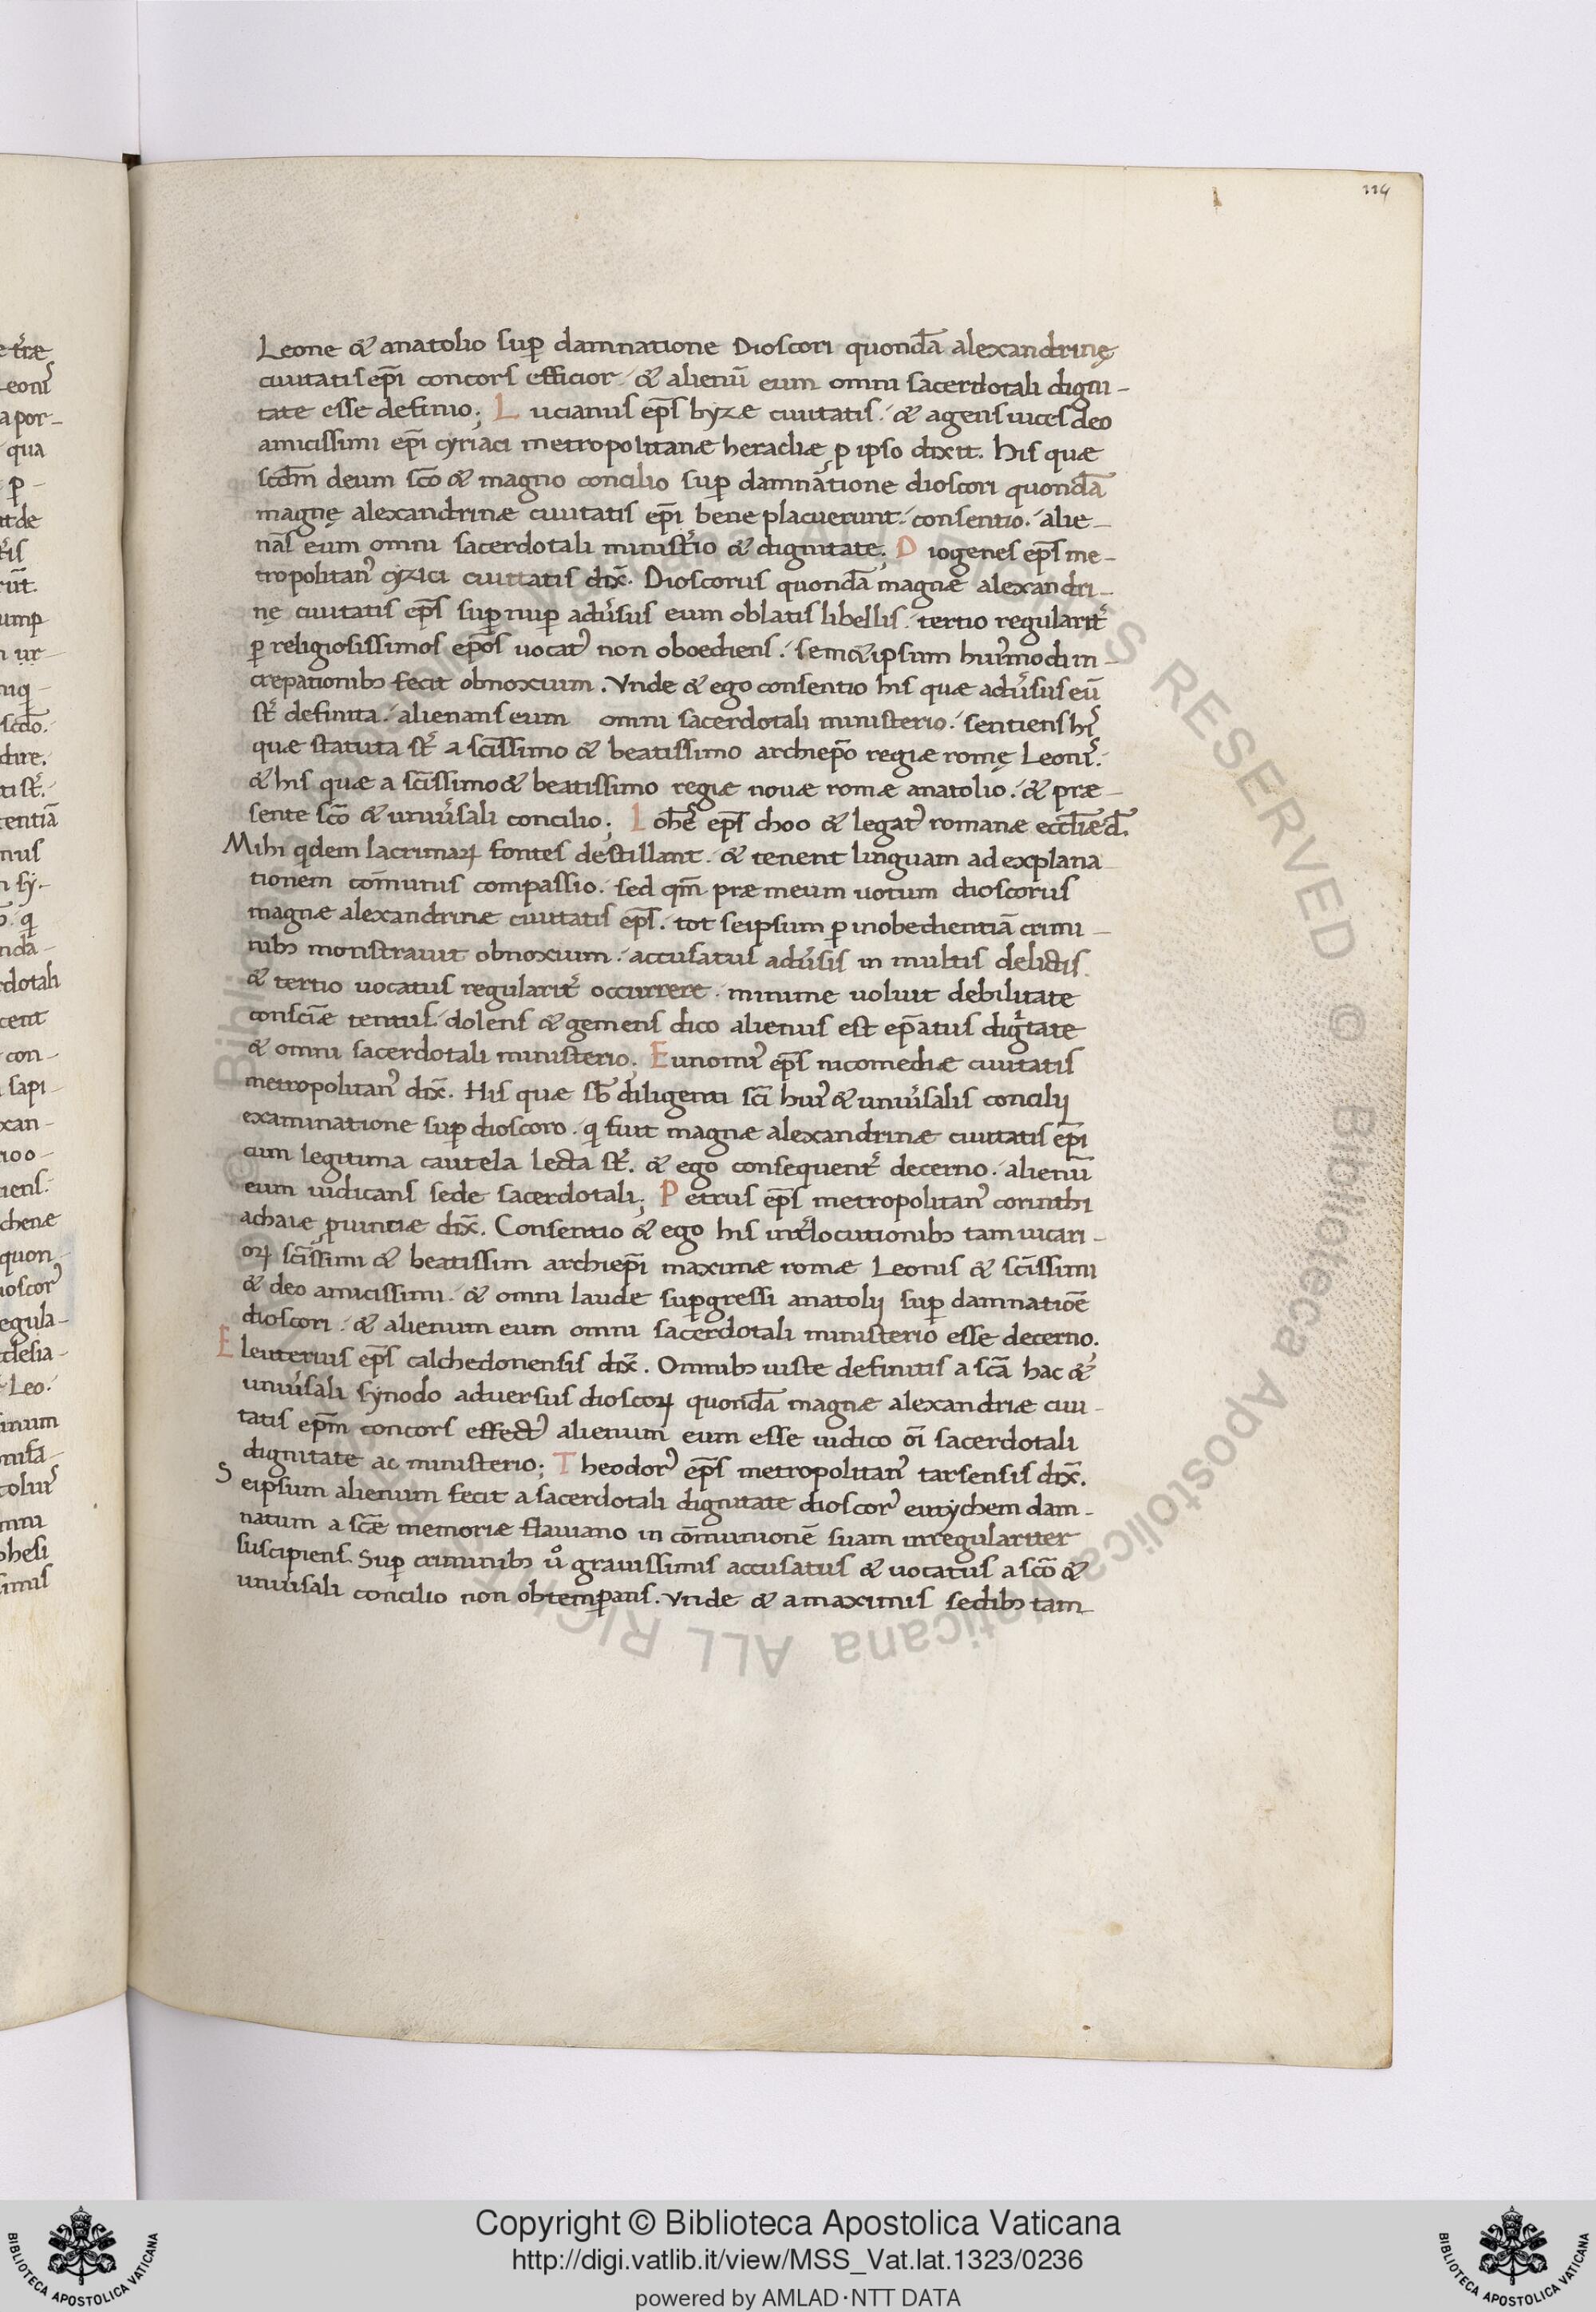 114
Leone & anatolio sup̱ damnatione Dioscori quondā alexandrinę
ciuitatis ep̄i concors efficior. & alienū eum omni sacerdotali digni-
tate esse definio; Lucianus ep̄s byzæ ciuitatis. & agens uices deo
amicissimi ep̄i cyriaci metropolitanæ heracliæ ꝑ ipso dixit. His quæ
scd̄m deum sc̄o & magno concilio suꝑ damnātione dioscori quondā
magnę alexandrinæ ciuitatis ep̄i bene placuerunt. consentio. alie-
nās eum omni sacerdotali minist̓io & dignitate; Diogenes ep̄s me-
tropolitan᾽ cyzici ciuitatis dix̄. Dioscorus quondā magnæ alexandri-
nę ciuitatis ep̄s suꝑ nuꝑ adu̓sus eum oblatis libellis. tertio regularit̓
ꝑ religiosissimos ep̄os uocat᾽ non oboediens. sem&ipsum hui᾽modi in-
crepationib; fecit obnoxium. Vnde & ego consentio his quæ adu̓sus eū
st̓ definita. alienans eum omni sacerdotali ministerio. sentiens hi᾽
quæ statuta st̓ a sc̄issimo & beatissimo archiep̄o regiæ romę Leoni᾽.
& his quæ a sc̄issimo & beatissimo regiæ nouæ romæ anatolio. & præ-
sente sc̄o & uniu̓sali concilio; Iohe᾽ ep̄s choo & legat᾽ romanæ eccl̄iæ d̄.
Mihi qdem lacrimaꝝ fontes destillant. & tenent linguam ad explana
tionem com̄unis compassio. sed qm̄ præ meum uotum dioscorus
magnæ alexandrinæ ciuitatis ep̄s. tot seipsum ꝑ inobedientiā crimi-
nib; monstrauit obnoxium. accusatus adu̓sis in multis delictis
& tertio uocatus regularit̓ occurrere. minime uoluit debilitate
consc̄iæ tentus. dolens & gemens dico alienus est ep̄atus dig̓tate
& omni sacerdotali ministerio; Eunomi᾽ ep̄s nicomediæ ciuitatis
metropolitan᾽ dix̄. His quæ sb̄ diligenti sc̄i hui᾽ & uniu̓salis concilij
examinatione suꝑ dioscoro. q fuit magnæ alexandrinæ ciuitatis ep̄i
cum legitima cautela lecta st̓. & ego consequent̓ decerno. alienū
eum iudicans sede sacerdotali; Petrus ep̄s metropolitan᾽ corinthi
achaiæ ꝓuintiæ dix̄. Consentio & ego his int̓locutionib; tam uicari-
oꝝ sc̄issimi & beatissim archiep̄i maximæ romæ Leonis & sc̄issimi
& deo amicissimi. & omni laude suꝑgressi anatolij suꝑ damnationē
dioscori. & alienum eum omni sacerdotali ministerio esse decerno.
Eleuterius ep̄s calchedonensis dix̄. Omnib; iuste definitis a sc̄a hac &
uniu̓sali synodo aduersus dioscoꝝ quondā magnæ alexandriæ ciui-
tatis ep̄m concors effect᾽ alienum eum esse iudico oī sacerdotali
dignitate ac ministerio; Theodor᾽ ep̄s metropolitan᾽ tarsensis dix̄.
Seipsum alienum fecit a sacerdotali dignitate dioscor᾽ eutychem dam-
natum a sc̄æ memoriæ flauiano in com̄unionē suam irregulariter
suscipiens. Suꝑ criminib; uº grauissimis accusatus & uocatus a sc̄o &
uniu̓sali concilio non obtemꝑans. Vnde & a maximis sedib; tam-
Copyright © Biblioteca Apostolica Vaticana
http://digi.vatlib.it/view/MSS_Vat.lat.1323/0236
powered by AMLAD·NTT DATA